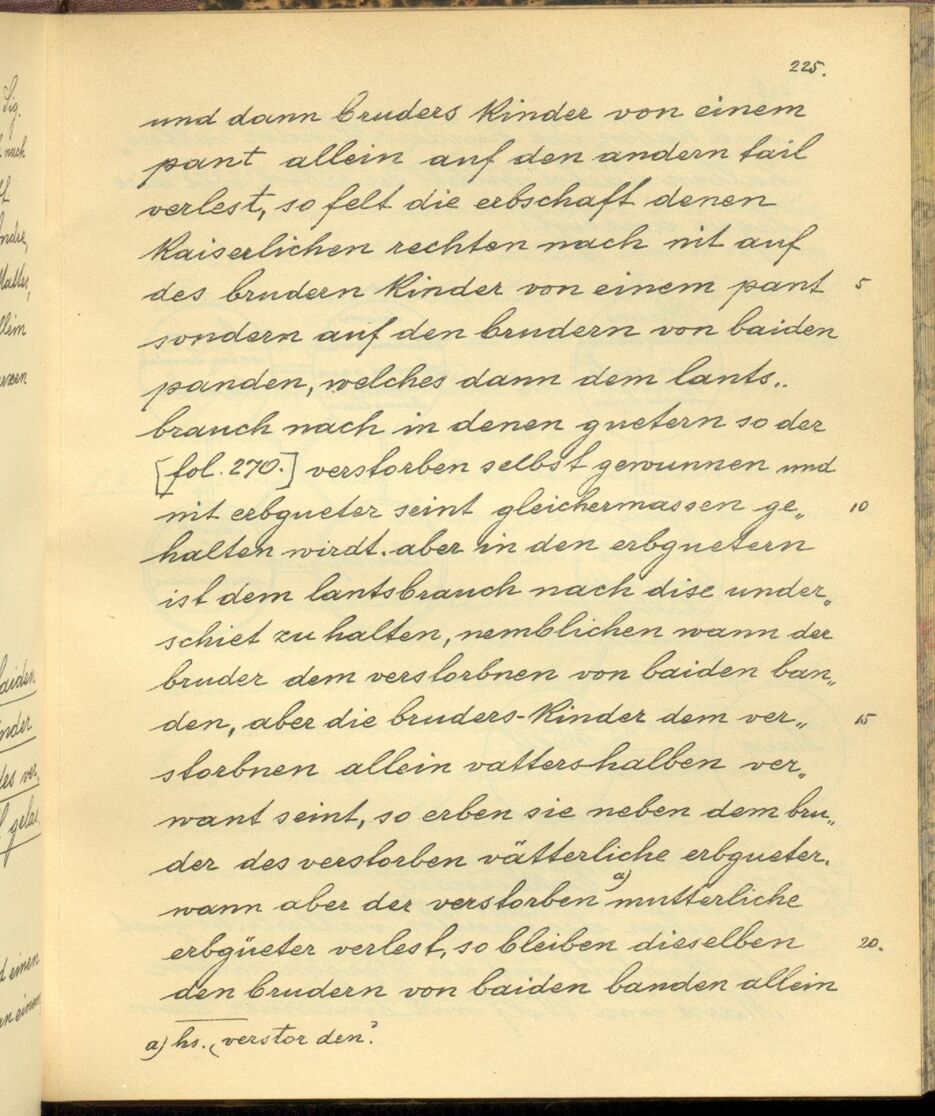 225.
und dann bruders kinder von einem
pant allein auf den andern tail
verlest, so felt die erbschaft denen
kaiserlichen rechten nach nit auf
des brudern kinder von einem pant 5
sondern auf den brudern von baiden
panden, welches dann dem lants„
brauch nach in denen guetern so der
[fol. 270.] verstorben selbst gewunnen und
nit erbgueter seint gleichermassen ge„ 10
halten wirdt. aber in den erbguetern
ist dem lantsbrauch nach dise under„
schiet zu halten, nemblichen wann der
bruder dem verstorbnen von baiden ban„
den, aber die bruders-kinder dem ver„ 15
storbnen allein vattershalben ver„
want seint, so erben sie neben dem bru„
der des verstorben vätterliche erbgueter.
wann aber der verstorben a) mutterliche
erbgüeter verlest, so bleiben dieselben 20.
den brudern von baiden banden allein
a) hs. „verstorden“.
Sig.
nach
baiden
einen